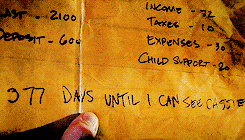 AST - 2100
DEPOSIT - 600
INCOME - 72
TAXES - 10
EXPENSES - 30
CHILD SUPPORT - 20
377 DAYS UNTIL I CAN SEE CASSIE